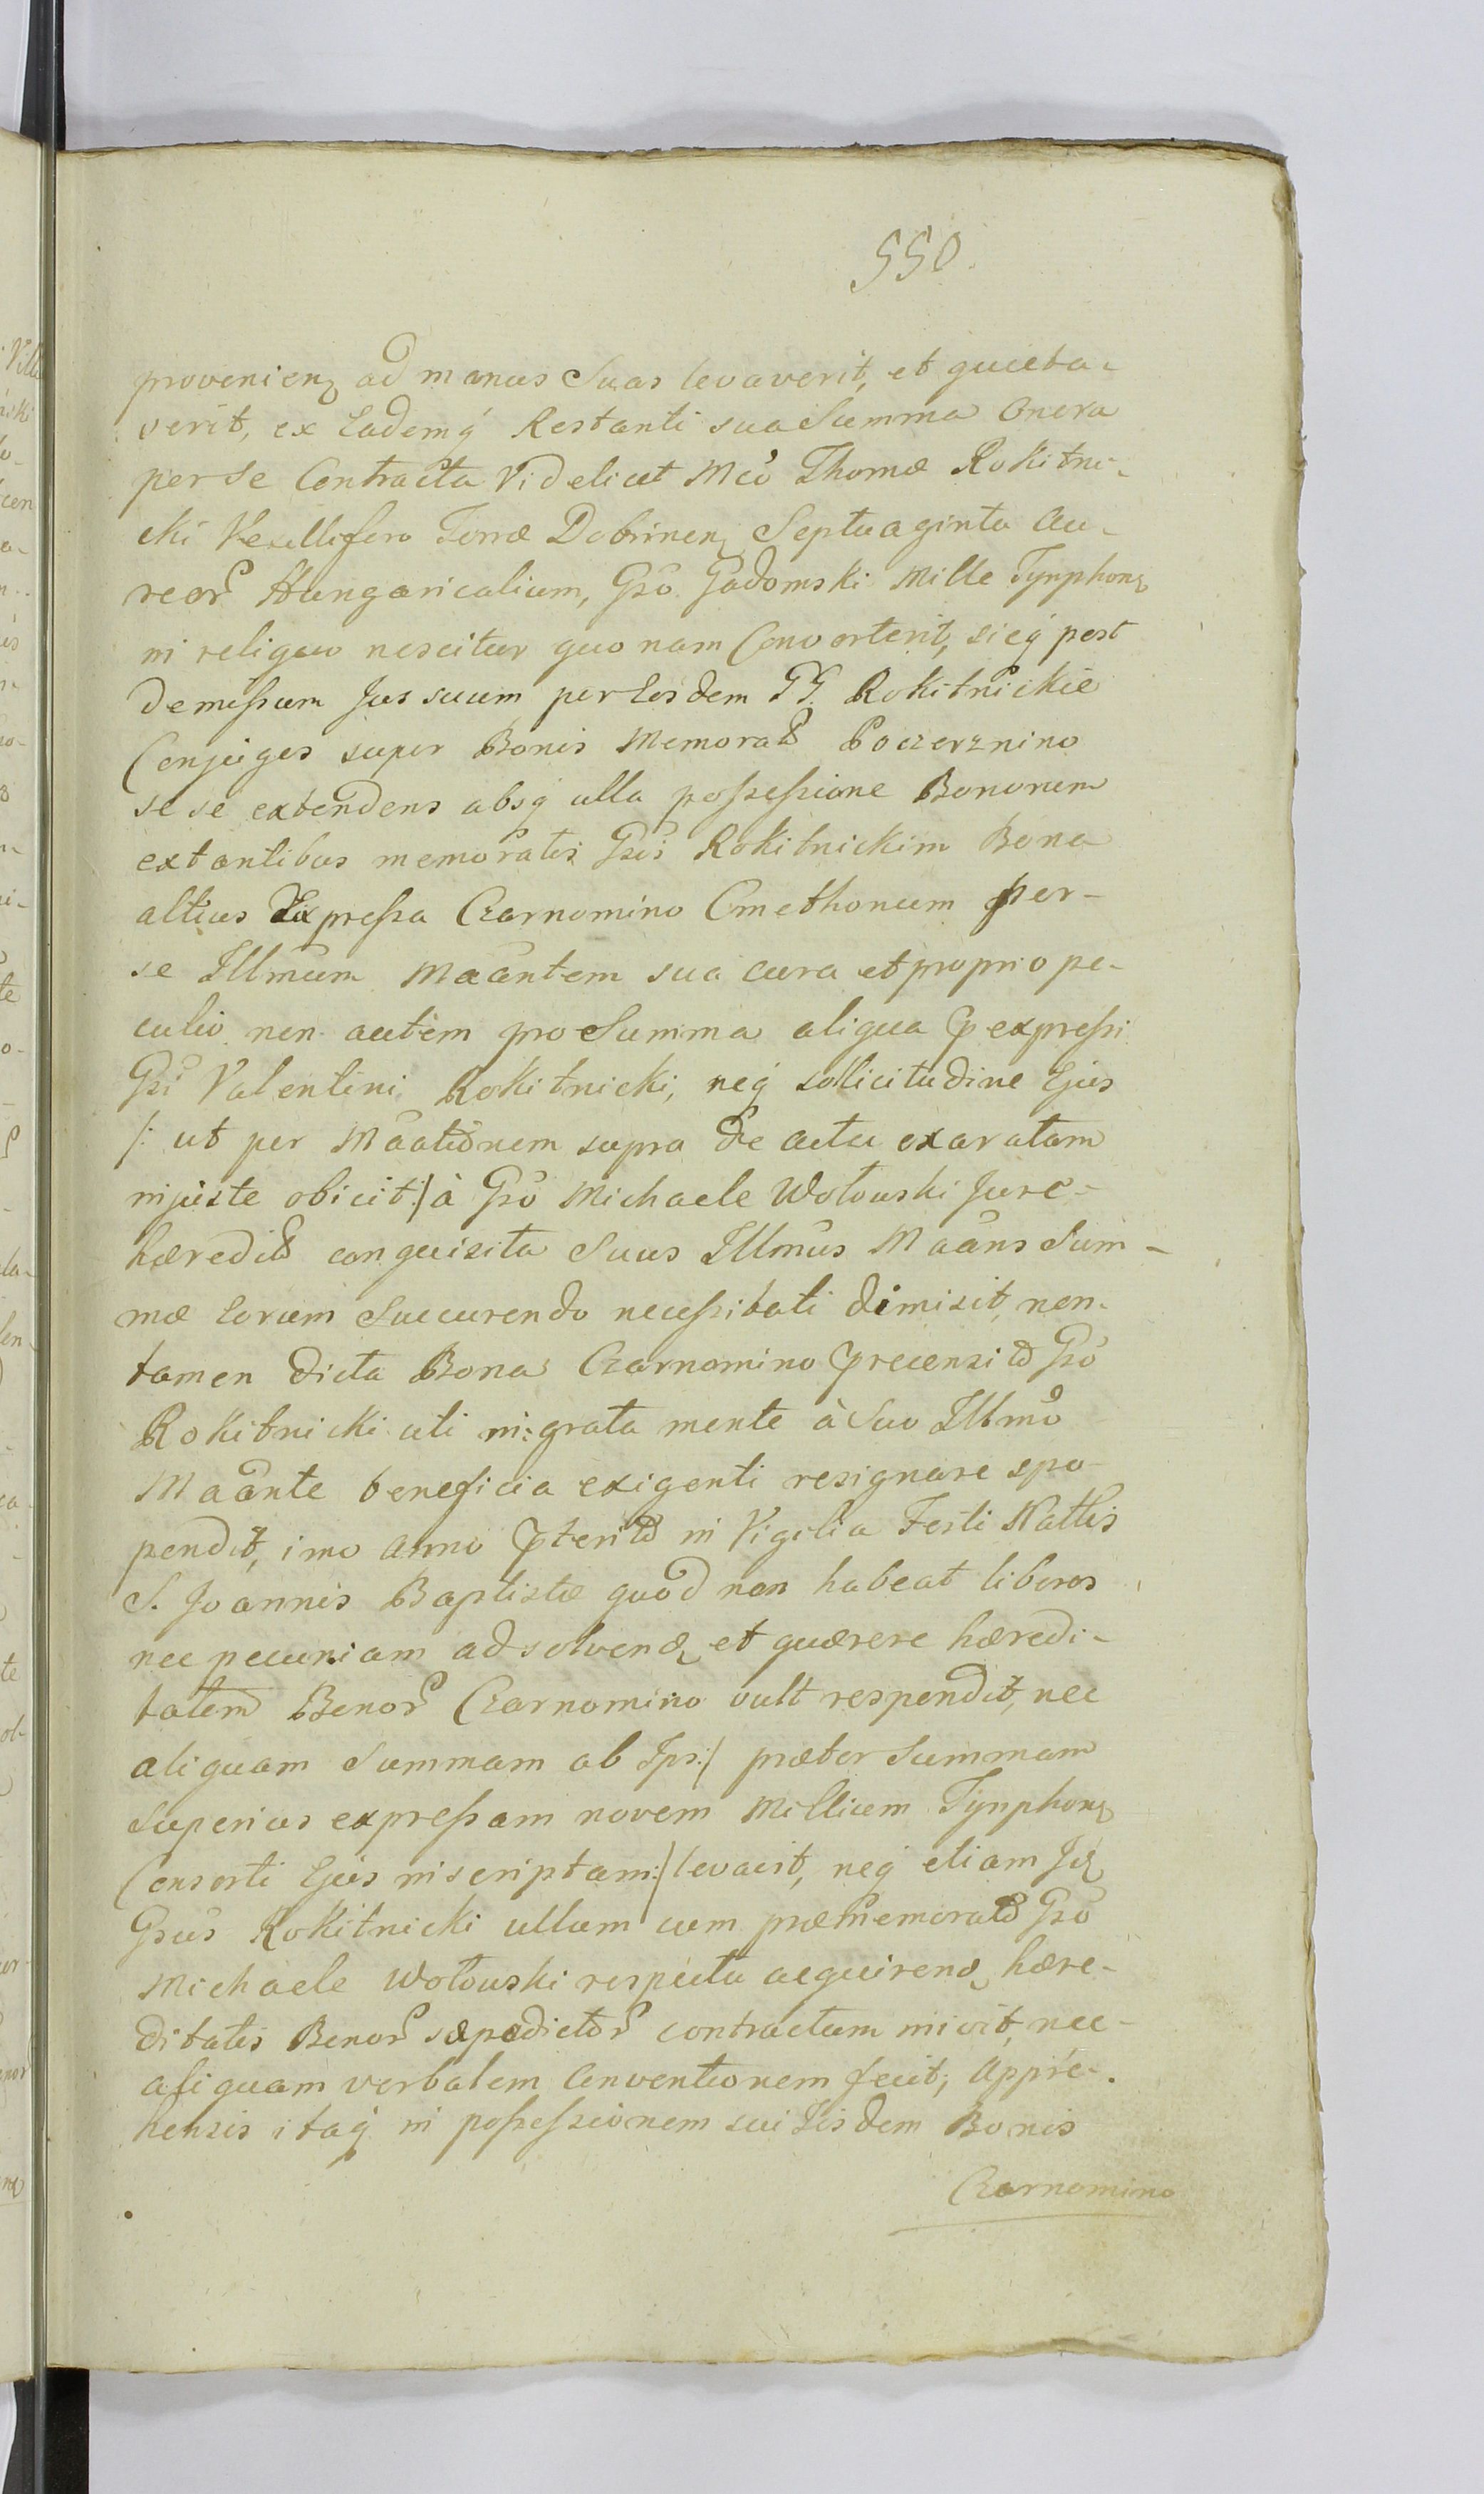 550.
provenienɀ ad manus Suas levaverit, et quieta-
verit, ex Eademq́ Restanti sua Summa Onera
per Se Contracta Videlicet Mcõ Thomæ Rokitni-
cki Vexillifero Terræ Dobrinenɀ Septuaginta Au-
reor̃ Hungaricalium, Gsõ Gadomski Mille Tynphonɀ
in reliquo nescitur quo nam Convorterit, sicq́ post
demissum Jus suum per Eosdem GG. Rokitnickie
Conjuges super Bonis Memorat̃ Poczerznino
se se extendens absq́ ulla possessione Bonorum
extantibus memoratis Gsis Rokitnickim Bona
altius Expressa Czarnomino Cmethonum per-
se Illmum Maantem sua cura et proprio pe-
culio non autem pro Summa aliqua p̃expressi
Gsi Valentini Rokitnicki, neq́ sollicitudine Ejus
/: ut per Maationem supra de actu exaratam
injuste obicit :/ à Gsõ Michaele Wołowski Jure-
hæredit̃ conquisita Suus Illmus Maans Sum-
mæ Eorum Succurendo necessitati dimisit, non-
tamen dicta Bona Czarnomino p̃recensito Gsõ
Rokitnicki uti in:grata mente à Suo Illmõ
Maante beneficia exigenti resignare spo-
pendit, imo anno p̃terito in Vigilia Festi Nattis
S. Joannis Baptistæ quod non habeat liberos
nec pecuniam ad solvendɀ et quærere hæredi-
tatem Bonor̃ Czarnomino vult respondit, nec
aliquam Summam ab Ips:/ præter Summam
superius expressam novem Millium Tynphonɀ
Consorti Ejus inscriptam:/ levavit, neq́ etiam Idɀ
Gsus Rokitnicki ullum cum præmemorato Gsõ
Michaele Wołowski respectu acquirendɀ hære-
ditatis Bonor̃ sæpedictor̃ contractum inivit, nec-
aliquam verbalem Conventionem fecit; Appre-
hensis itaq́ in possessionem sui Iisdem Bonis
Czarnomino